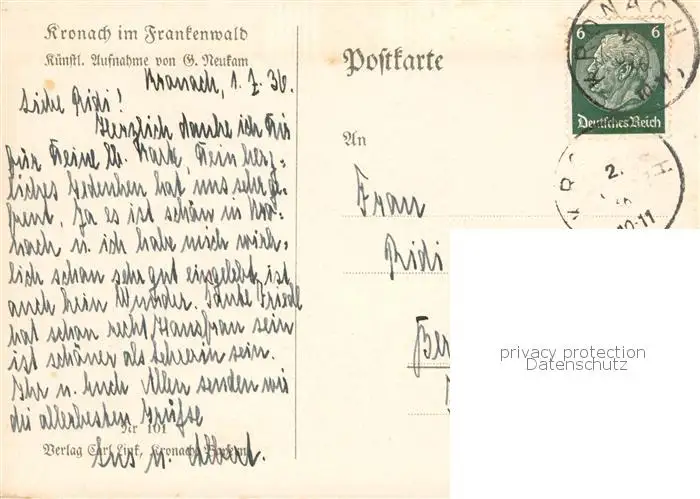 Kronach im Frankenwald
Künstl. Aufnahme von G. Neukam
Kronach, 1. 7. 36.
Liebe Ridi!
Herzlich danke ich Dir
für Deine lb. Karte, Dein herz-
liches Gedenken hat uns sehr ge-
freut. Ja es ist schön in Kro-
nach u. ich habe mich wirk-
lich schon sehr gut eingelebt, ist
auch kein Wunder. Tante Friedl
hat schon recht Hausfrau sein
ist schöner als Lehrerin sein.
Ihr u. Euch Allen senden wir
die allerbesten Grüsse
Nr 101
Verlag Carl Link, Kronach, Bayern
u. Albert.
Postkarte
An
Frau
Ridi
Ber
KRONACH
6 6
Deutsches Reich
2.
10-11
privacy protection
Datenschutz